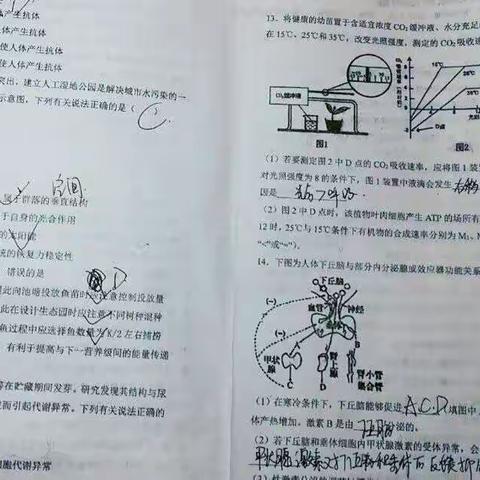 产生抗体
人体产生抗体
使人体产生抗体
使人体产生抗体
突出，建立人工湿地公园是解决城市水污染的一
示意图，下列有关说法正确的是（ C
空间
属于群落的垂直结构
于自身的光合作用
的太阳能
统的恢复力稳定性
错误的是 D
此向池塘投放鱼苗时应注意控制投放量
此在设计生态园时应注意不同树种混种
鱼过程中应选择鱼数量为 K/2 左右捕捞
有利于提高与下一营养级间的能量传递
等在贮藏期间发芽。研究发现其结构与尿
而引起代谢异常。下列有关说法正确的
细胞代谢异常
13. 将健康的幼苗置于含适宜浓度 CO₂ 缓冲液、水分充足
在 15℃、25℃和 35℃，改变光照强度，测定的 CO₂ 吸收速
CO₂缓冲液
图1
CO₂吸收速率
15℃
25℃
35℃
D点
光照
图2
（1）若要测定图 2 中 D 点的 CO₂ 吸收速率，应将图 1 装置
对光照强度为 8 的条件下，图 1 装置中液滴会发生 右移
因是
（2）图 2 中 D 点时，该植物叶肉细胞产生 ATP 的场所有
12 时，25℃与 15℃条件下有机物的合成速率分别为 M₁、M
“<”或“=”）。
14. 下图为人体下丘脑与部分内分泌腺或效应器功能关系
下丘脑
血管
神经
垂体
(−)
(−)
甲状腺
A
C
肾上腺
B
D
肾小管
集合管
（1）在寒冷条件下，下丘脑能够促进 A、C、D 填图中
体产热增加。激素 B 是由 下丘脑 泌的。
（2）若下丘脑和垂体细胞内甲状腺激素的受体异常，会